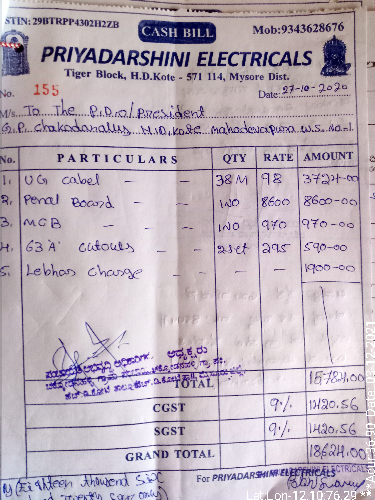 GSTIN: 29BTRPP4302H2ZB
CASH BILL
Mob:9343628676
PRIYADARSHINI ELECTRICALS
Tiger Block, H.D.Kote - 571 114, Mysore Dist.
No. 155 Date: 27-10-2020
M/s To The P.D.O/President
G.P. chakodanally H.D.Kote mahadevapura W.S.
No. PARTICULARS QTY RATE AMOUNT
1. UG cabel 38M 98 3724-00
2. Penal Board 1NO 8600 8600-00
3. MCB 1NO 970 970-00
4. 63'A' cutouts 2set 295 590-00
5. Lebhar charge 1900-00
ಅಧ್ಯಕ್ಷರು
TOTAL 15784.00
CGST 9% 1420.56
SGST 9% 1420.56
GRAND TOTAL 18624.00
(Eighteen thousand six
For PRIYADARSHINI ELECTRICALS
Lat Lon-12.1076.29